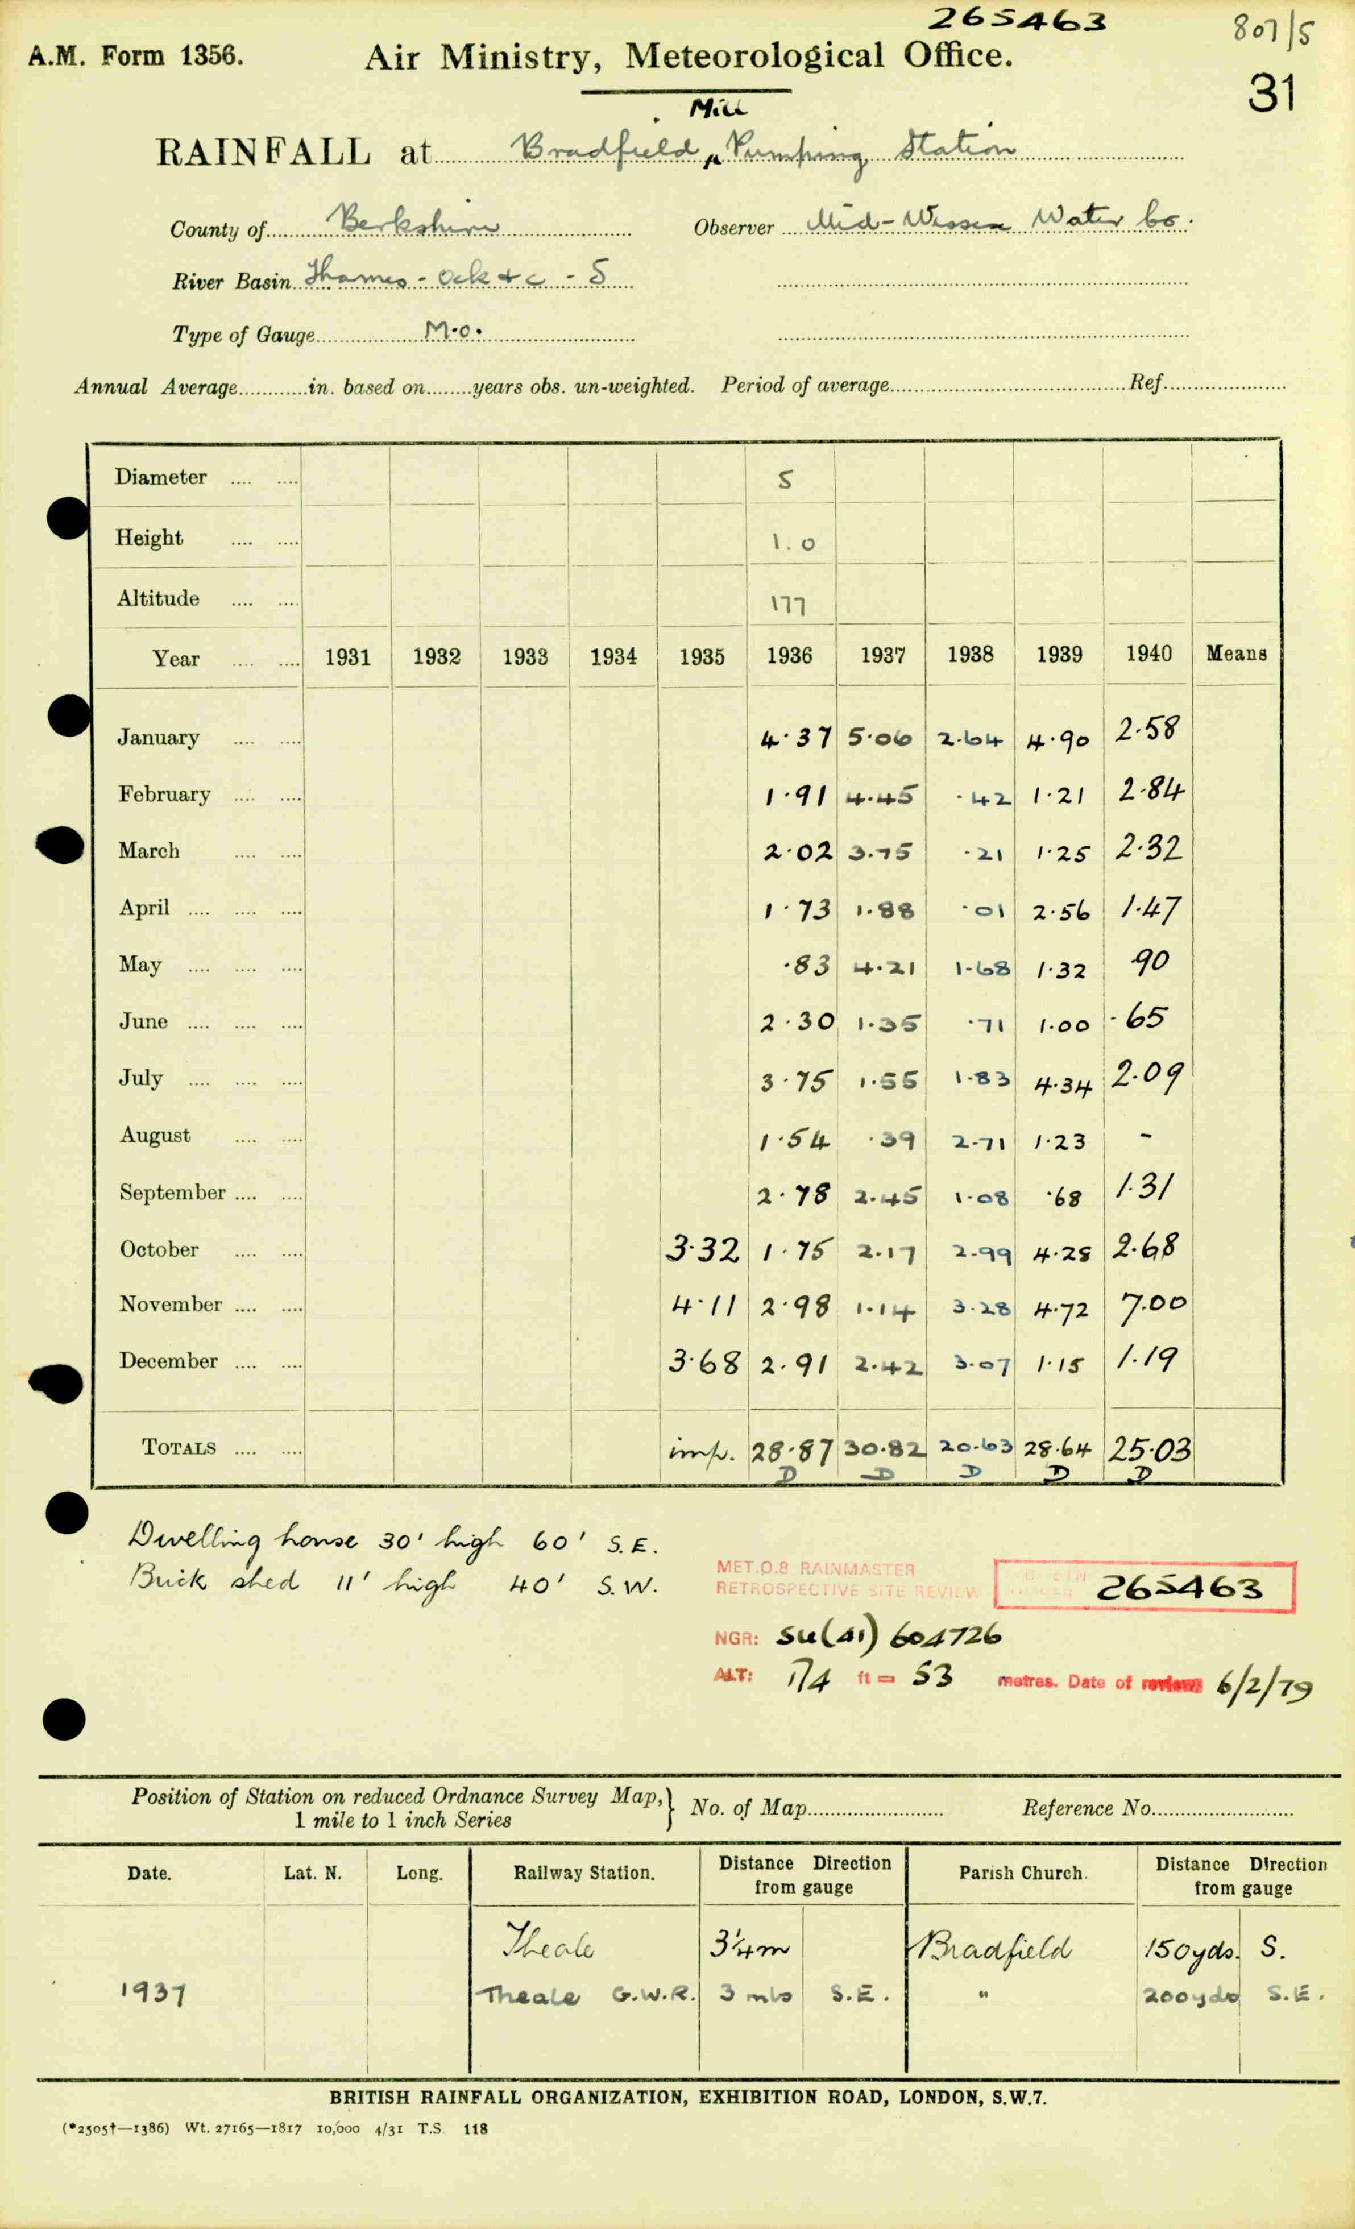 265463
807/5
A.M. Form 1356. Air Ministry, Meteorological Office.
31
Mill
RAINFALL at Bradfield ^ Pumping Station
County of Berkshire Observer Mid-Wessex Water Co.
River Basin Thames - Ock & c - S
Type of Gauge M.O.
Annual Average............in. based on........years obs. un-weighted. Period of average.................... Ref....................
Diameter .... .... 5
Height .... .... 1.0
Altitude .... .... 177
Year .... .... 1931 1932 1933 1934 1935 1936 1937 1938 1939 1940 Means
January .... .... 4.37 5.06 2.64 4.90 2.58
February .... .... 1.91 4.45 .42 1.21 2.84
March .... .... 2.02 3.75 .21 1.25 2.32
April .... .... .... 1.73 1.88 .01 2.56 1.47
May .... .... .... .83 4.21 1.68 1.32 .90
June .... .... .... 2.30 1.35 .71 1.00 .65
July .... .... .... 3.75 1.55 1.83 4.34 2.09
August .... .... 1.54 .39 2.71 1.23 -
September .... .... 2.78 2.45 1.08 .68 1.31
October .... .... 3.32 1.75 2.17 2.99 4.28 2.68
November .... .... 4.11 2.98 1.14 3.28 4.72 7.00
December .... .... 3.68 2.91 2.42 3.07 1.15 1.19
TOTALS .... .... imp. 28.87 30.82 20.63 28.64 25.03
D D D D D
Dwelling house 30' high 60' S.E.
Brick shed 11' high 40' S.W.
MET.O.8 RAINMASTER
RETROSPECTIVE SITE REVIEW 265463
NGR: SU(41) 604726
ALT: 174 ft = 53 metres. Date of review 6/2/79
Position of Station on reduced Ordnance Survey Map, } No. of Map........................ Reference No........................
1 mile to 1 inch Series
Date. Lat. N. Long. Railway Station. Distance Direction from gauge Parish Church. Distance Direction from gauge
Theale 3¼m Bradfield 150yds. S.
1937 Theale G.W.R. 3 mls S.E. " 200yds S.E.
BRITISH RAINFALL ORGANIZATION, EXHIBITION ROAD, LONDON, S.W.7.
(*2505†—1386) Wt. 27165—1817 10,000 4/31 T.S. 118